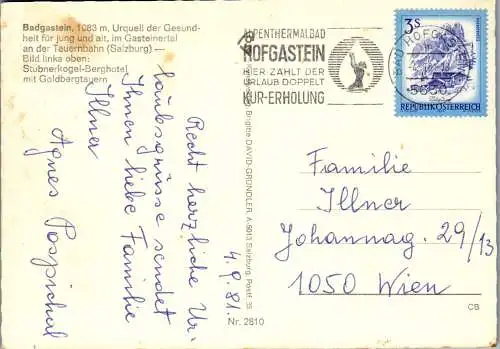 Badgastein, 1083 m, Urquell der Gesund-
heit für jung und alt, im Gasteinertal
an der Tauernbahn (Salzburg) —
Bild links oben:
Stubnerkogel-Berghotel
mit Goldbergtauern
Recht herzliche Ur-
laubsgrüsse sendet
Ihnen liebe Familie
Illner
Agnes Pospichal
4.9.81.
Brigitte DAVID-GRÜNDLER, A-5013 Salzburg, Postf. 35
Nr. 2810
ALPENTHERMALBAD
HOFGASTEIN
HIER ZÄHLT DER
URLAUB DOPPELT
KUR-ERHOLUNG
BAD HOFGASTEIN
5630
3 S
REPUBLIK ÖSTERREICH
Familie
Illner
Johannag. 29/13
1050 Wien
CB